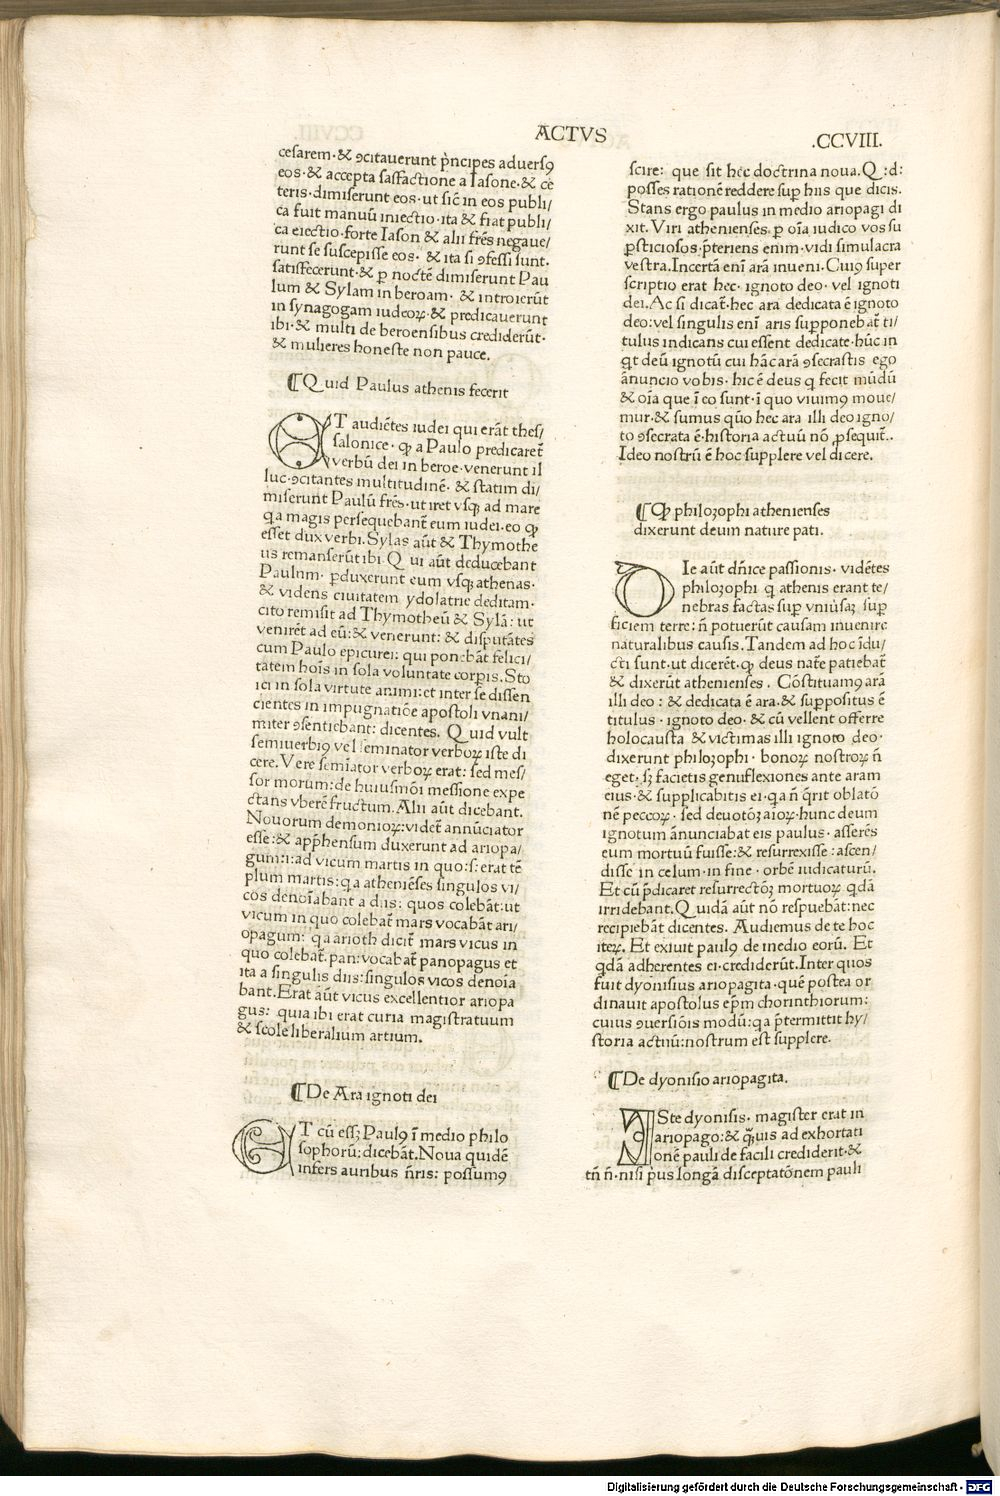 ACTVS
.CCVIII.
cesarem·& ꝯcitauerunt pꝛ̀ncipes aduersꝰ
eos·& accepta satſfactione a Iasone·& ce
teris·dimiserunt eos·ut sic̄ in eos publi/
ca fuit manuū iniectio·ita & fiat publi/
ca eiectio·forte Iason & alii frēs negaue/
runt se suscepisse eos· & ita si ꝯfessi sunt.
satisfecerunt·& ꝑ noctē dimiserunt Pau
lum & Sylam in beroam· & introierūt
in synagogam iudeoꝝ·& predicauerunt
ibi·& multi de beroensibus crediderūt·
& mulieres honeste non pauce.
⸿Quid Paulus athenis fecerit
ET audiētes iudei qui erāt thes/
salonice· ꝙ a Paulo predicaret̄
verbū dei in beroe·venerunt il
luc·ꝯcitantes multitudinē· & statim di/
miserunt Paulū frēs·ut iret vsqꝫ ad mare
qa magis persequebant̄ eum iudei·eo ꝙ
esset dux verbi. Sylas aūt & Thymothe
us remanserūt ibi·Qui aūt deducebant
Paulum· ꝑduxerunt eum vsqꝫ athenas·
& videns ciuitatem ydolatrie deditam·
cito remisit ad Thymotheū & Sylā: ut
venirēt ad eū:& venerunt: & disputātes
cum Paulo epicurei: qui ponebāt felici/
tatem hoīs in sola voluntate corpis. Sto
ici in sola virtute animi:et inter se dissen
cientes in impugnatiōe apostoli vnani/
miter ꝯsentiebant: dicentes. Quid vult
semiuerbiꝰ vel seminator verboꝝ iste di
cere. Vere semīator verboꝝ erat: sed mes/
sor morum:de huiusmōi messione expe
ctans vberē fructum. Alii aūt dicebant.
Nouorum demonioꝝ:videt̄ annūciator
esse:& app̄hensum duxerunt ad ariopa/
gum:i:ad vicum martis in quo:s:erat tē
plum martis:qa atheniēses singulos vi/
cos denoīabant a diis: quos colebāt:ut
vicum in quo colebat̄ mars vocabāt ari/
opagum: qa arioth dicit̄ mars vicus in
quo colebat̄.pan:vocabat̄ panopagus et
ita a singulis diis:singulos vicos denoīa
bant.Erat aūt vicus excellentior ariopa
gus: quia ibi erat curia magistratuum
& scole liberalium artium.
⸿De Ara ignoti dei
ET cū essꝫ Paulꝰ ī medio philo
sophorū:dicebāt.Noua quidē
infers auribus n̄ris: possumꝰ
scire: que sit hec doctrina noua.Q:d:
posses rationē reddere suꝑ hiis que dicis.
Stans ergo paulus in medio ariopagi di
xit. Viri athenienses.ꝑ oīa iudico vos su
ꝑsticiosos·p̄teriens enim·vidi simulacra
vestra.Incertā enī arā inueni.Cuiꝰ super
scriptio erat hec· ignoto deo· vel ignoti
dei.Ac si dicat̄·hec ara dedicata ē ignoto
deo:vel singulis enī aris supponebat̄ ti/
tulus indicans cui essent dedicate·hūc in
qt deū ignotū cui hāc arā ꝯsecrastis ego
ānuncio vobis·hic ē deus q fecit mūdū
& oīa que ī eo sunt·ī quo viuimꝰ moue/
mur·& sumus quō hec ara illi deo igno/
to ꝯsecrata ē·historia actuū nō ꝓsequit̄.
Ideo nostrū ē hoc supplere vel dicere.
⸿ꝙ philozophi athenienses
dixerunt deum nature pati.
DIe aūt dn̄ice passionis· vidētes
philozophi q athenis erant te/
nebras factas suꝑ vniūsaꝫ suꝑ
ficiem terre: n̄ potuerūt causam inuenire
naturalibus causis.Tandem ad hoc īdu/
cti sunt·ut dicerēt·ꝙ deus nat̄e patiebat̄
& dixerūt athenienses. Cōstituamꝰ arā
illi deo: & dedicata ē ara·& suppositus ē
titulus· ignoto deo·& cū vellent offerre
holocausta & victimas illi ignoto deo·
dixerunt philozophi· bonoꝝ nostroꝝ n̄
eget·sꝫ facietis genuflexiones ante aram
eius·& supplicabitis ei·qa n̄ q̄rit oblatō
nē peccoꝝ· sed deuotōꝫ aioꝝ·hunc deum
ignotum ānunciabat eis paulus· asserēs
eum mortuū fuisse:& resurrexisse:ascen/
disse in celum·in fine· orbē iudicaturū.
Et cū p̄dicaret resurrectōꝫ mortuoꝝ qdā
irridebant.Quidā aūt nō respuebāt:nec
recipiebāt dicentes. Audiemus de te hoc
iteꝝ. Et exiuit paulꝰ de medio eorū. Et
qdā adherentes ei·crediderūt.Inter quos
fuit dyonisius ariopagita·quē postea or
dinauit apostolus ep̄m chorinthiorum:
cuius ꝯuersiōis modū:qa p̄termittit hy/
storia actuū:nostrum est supplere.
⸿De dyonisio ariopagita.
ISte dyonisis· magister erat in
ariopago:& qꝫuis ad exhortati
onē pauli de facili crediderit·&
tn̄ n̄·nisi p̄us longā disceptatōnem pauli
Digitalisierung gefördert durch die Deutsche Forschungsgemeinschaft - DFG